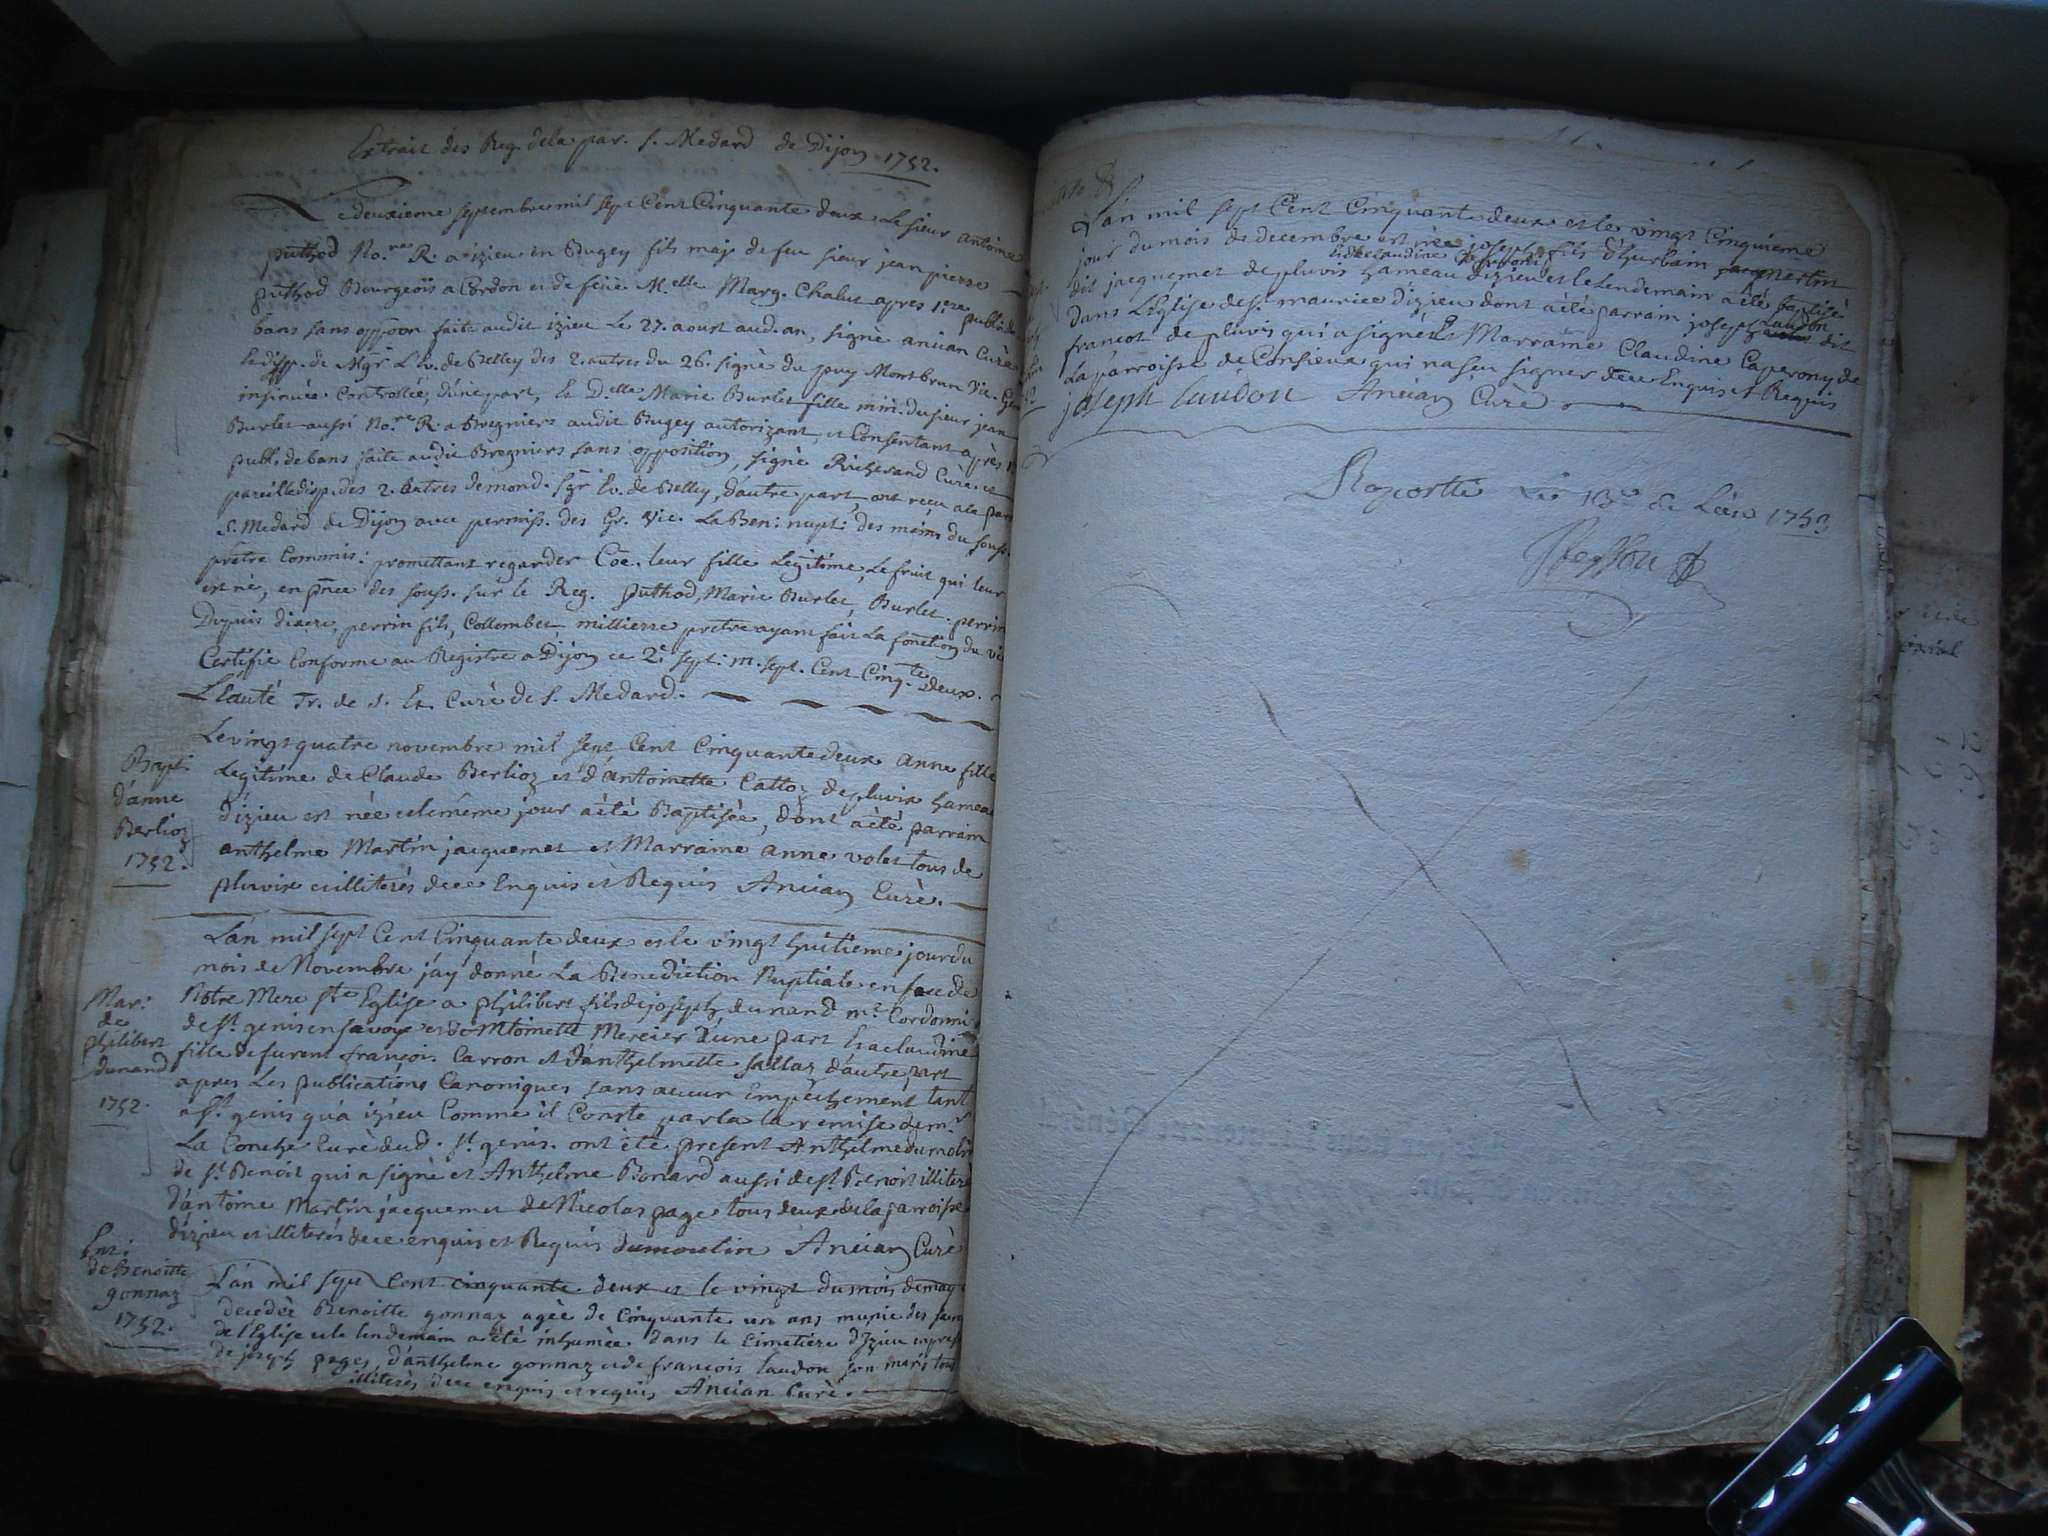 Extrait des Reg. de la par. s. Medard de Dijon 1752.
Le deuxieme septembre mil sept Cent Cinquante deux Le sieur antoine
puthod No.re R. a izieu en Bugey fils maj. de feu sieur jean pierre
puthod Bourgeois a Cordon et de feüe M.elle Marg. Chalut apres 1.ere publ. de
bans sans oppõon faite audit izieu Le 27. aoust aud. an, signè anian Curè
le disp. de Mgr. L'Ev. de Belley des 2. autres du 26. signè du puy Montbrun Vic. Gen
insinuée Controllée, d'une part, & D.elle Marie Burlet fille min. du sieur jean
Burlet aussi No.re R. a Bregniers audit Bugey autorizant, et Consentant après
publ. de bans faite audit Bregniers sans opposition, signè Richerand Curè et
pareille disp. des 2. autres de mond. sgr Ev. de Belley, d'autre part, ont reçu a la par
S. Medard de Dijon avec permiss. des Gr. Vic. La Ben: nupt: des mains du souss.
prêtre Commis: promettant regarder Cõe. leur fille Legitime, Le fruit qui leur
est né, en pñce des souss. sur le Reg. puthod, Marie Burlet, Burlet. perrin
Dupuis perrin fils, Collombet millierre prêtre ayant fait La fonction du vi
Certifié Conforme au Registre a Dijon ce 2.e sept: m. sept. Cent Cinq.te deux.
Curè de S. Medard.
Bapt:
d'anne
Berlioz
1752.
Le vingt quatre novembre mil sept Cent Cinquante deux anne fille
Legitime de Claude Berlioz et d'antoinette Cattoz de pluvix hameau
d'izieu est née et le même jour a été Baptisée, dont a été parrain
anthelme Martin jacquemet et Marraine anne volet tous de
pluvix et illiterés de ce Enquis et Requis Anian Curè.
L'an mil sept Cent Cinquante deux et le vingt huitieme jour du
mois de Novembre j'ay donné La Benediction Nuptiale en face de
Mar:
de
philibert
dunand
1752.
Notre Mere s.te Eglise a philibert fils de joseph dunand m.e Cordonni
de s.t genis en savoye et de Antoinette Mercier d'une part & a claudine
fille de furent françois Carron et d'anthelmette sallaz d'autre part
apres Les publications Canoniques sans aucun Empêchement tant
a s.t genis qu'a izieu Comme il Conste par la remise de m.r
La Conche Curè dud. s.t genis. ont été present Anthelme dumolin
de s.t Benoit qui a signè et Anthelme Bonard aussi de s.t Benoit illiteré
d'antoine Martin jacquemet de Nicolas page tous deux de la parroisse
d'izieu et illiterés de ce enquis et Requis dumoulin Anian Curè
Ent:
de Benoitte
gonnaz
1752.
L'an mil sept Cent cinquante deux et le vingt du mois de may
decedée Benoitte gonnaz agée de cinquante un ans munie des sacre
de l'Eglise et le lendemain a été inhumée dans le cimetiere d'Izieu en pres
de joseph pages, d'anthelme gonnaz et de françois laudon son mari tous
illiterés de ce enquis et requis Anian Curè.
L'an mil sept Cent Cinquante deux et le vingt Cinquieme
jour du mois de decembre est née joseph fils d'hurbain martin
& de claudine
dit jacquemet de pluvis hameau d'izieu et le Lendemain a été baptisé
dans L'Eglise de s.t maurice d'izieu dont a été parrain joseph laudon dit
francot de pluvis qui a signé et Marraine Claudine Caperony de
La parroisse de Conzieux qui na seu signer de ce Enquise et Requis
joseph laudon Anian Curè
Raporté Le 1753